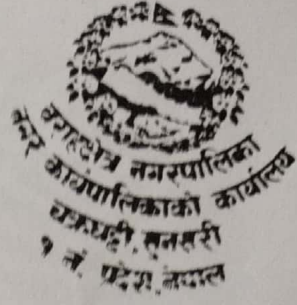 वराहक्षेत्र नगरपालिका
नगर कार्यपालिकाको कार्यालय
चक्रघट्टी, सुनसरी
१ नं. प्रदेश, नेपाल